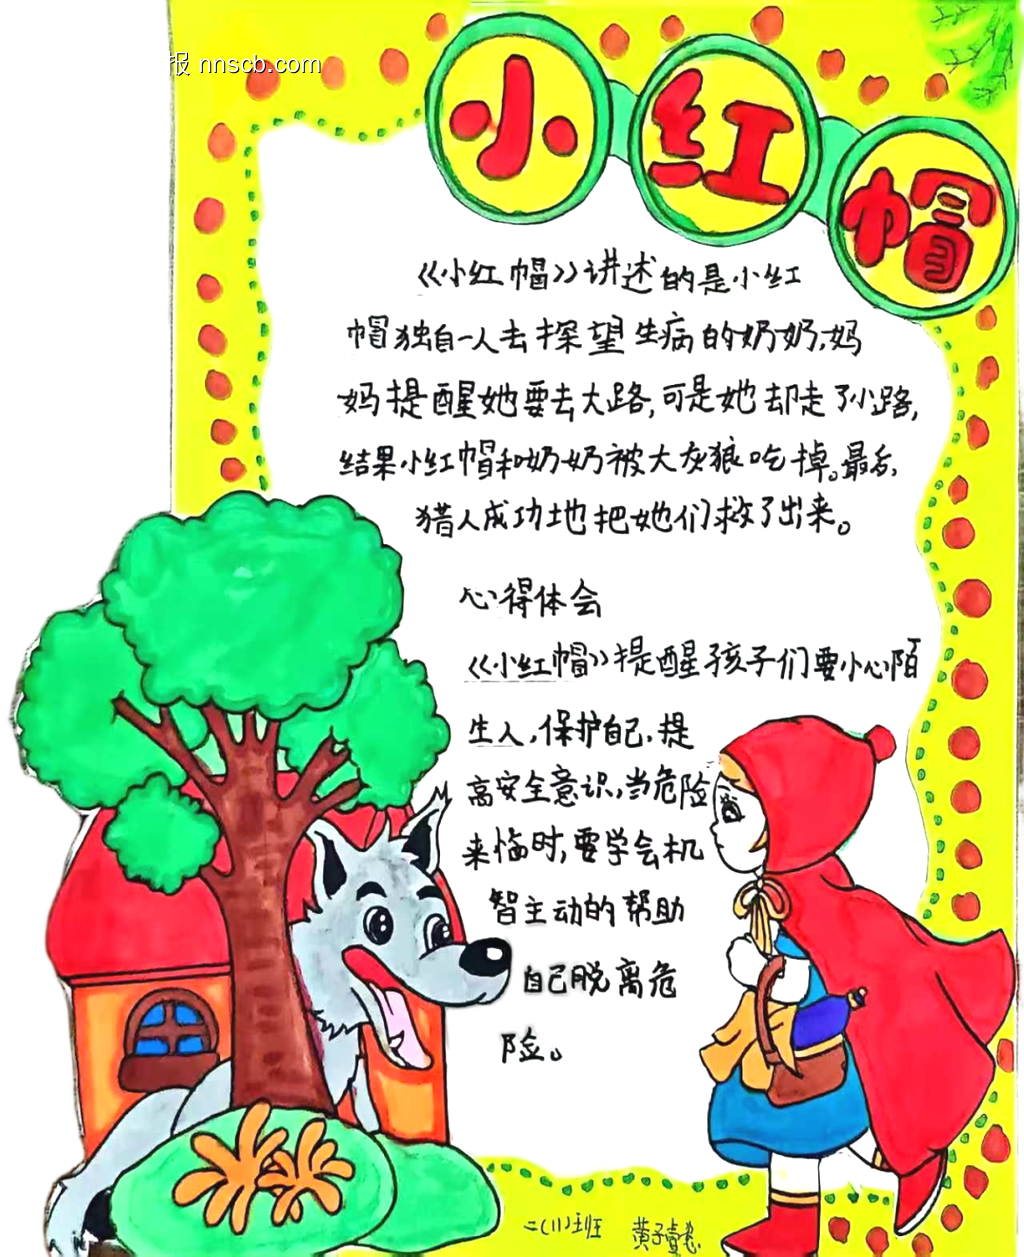 报 nnscb.com
小红帽
《小红帽》讲述的是小红
帽独自一人去探望生病的奶奶,妈
妈提醒她要去大路,可是她却走了小路,
结果小红帽和奶奶被大灰狼吃掉。最后,
猎人成功地把她们救了出来。
心得体会
《小红帽》提醒孩子们要小心陌
生人,保护自己,提
高安全意识,当危险
来临时,要学会机
智主动的帮助
自己脱离危
险。
二(11)班 黄子